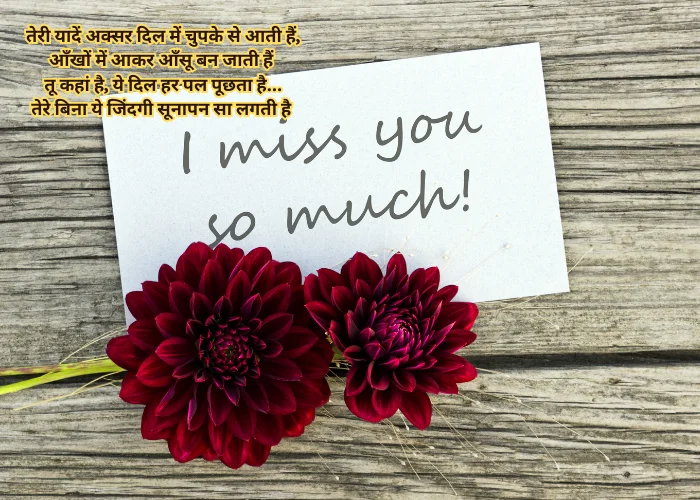 तेरी यादें अक्सर दिल में चुपके से आती हैं,
आँखों में आकर आँसू बन जाती हैं
तू कहां है, ये दिल हर पल पूछता है...
तेरे बिना ये जिंदगी सूनापन सा लगती है
I miss you
so much!